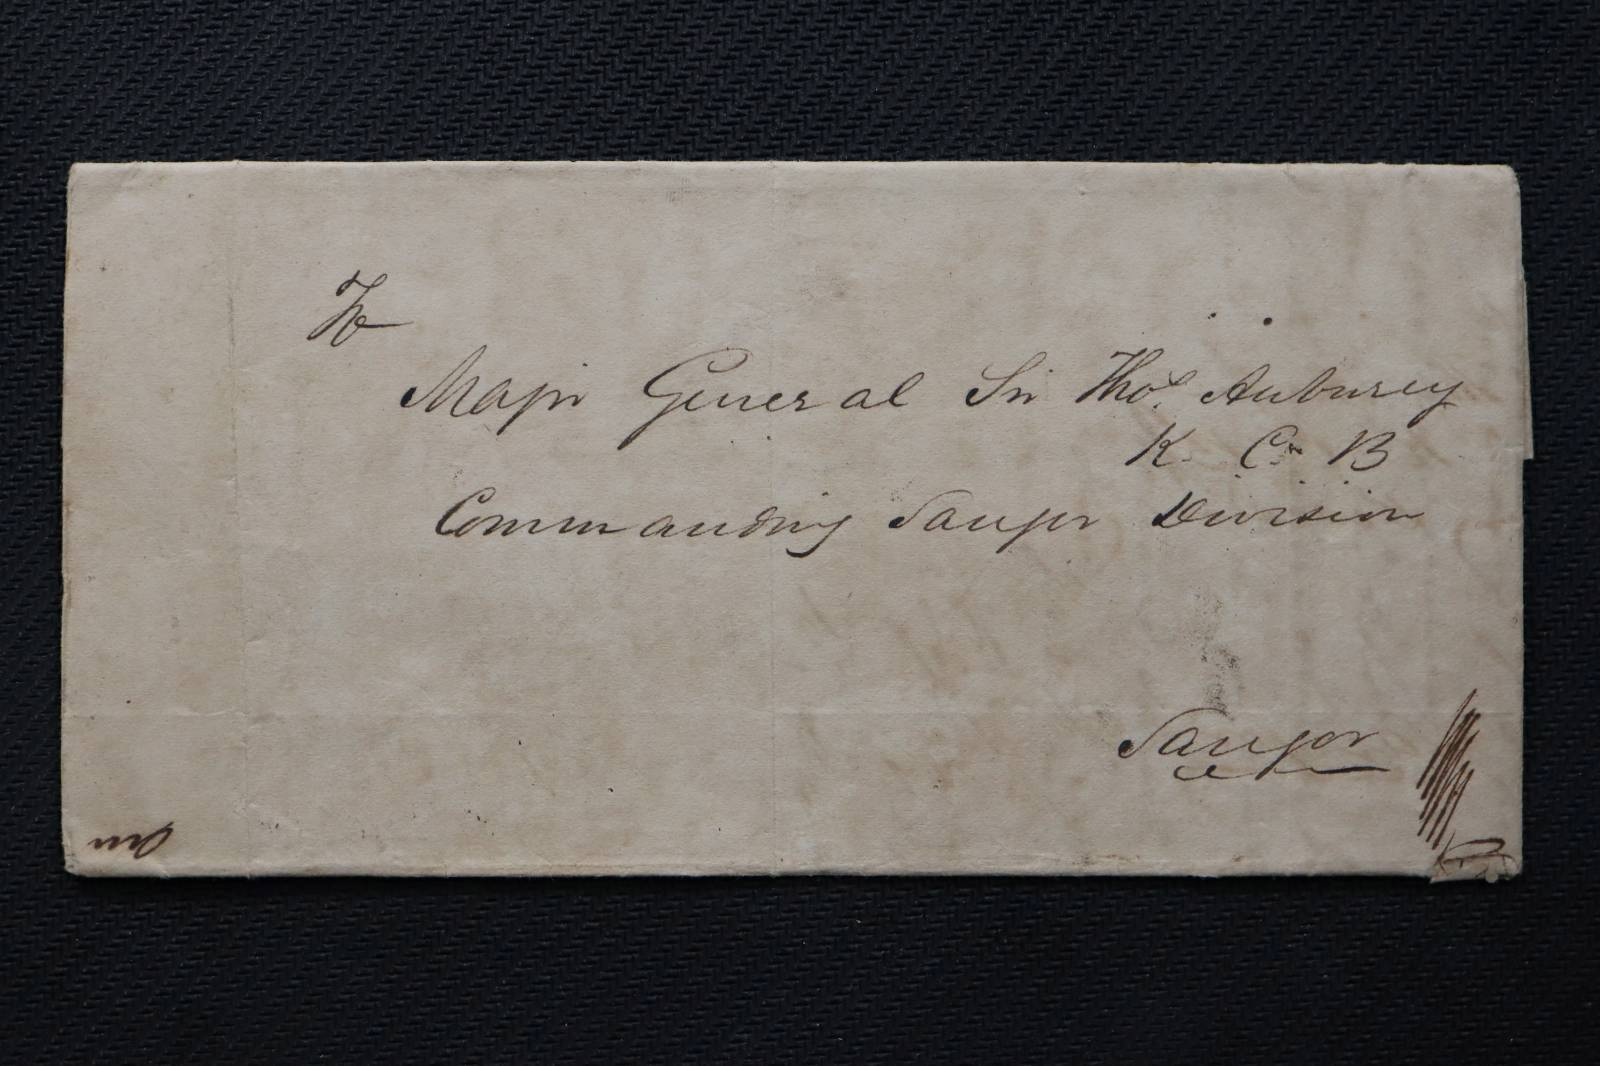 To
Major General Sir Thos. Anbursey
K. C. B
Commanding Saugor Division
Saugor